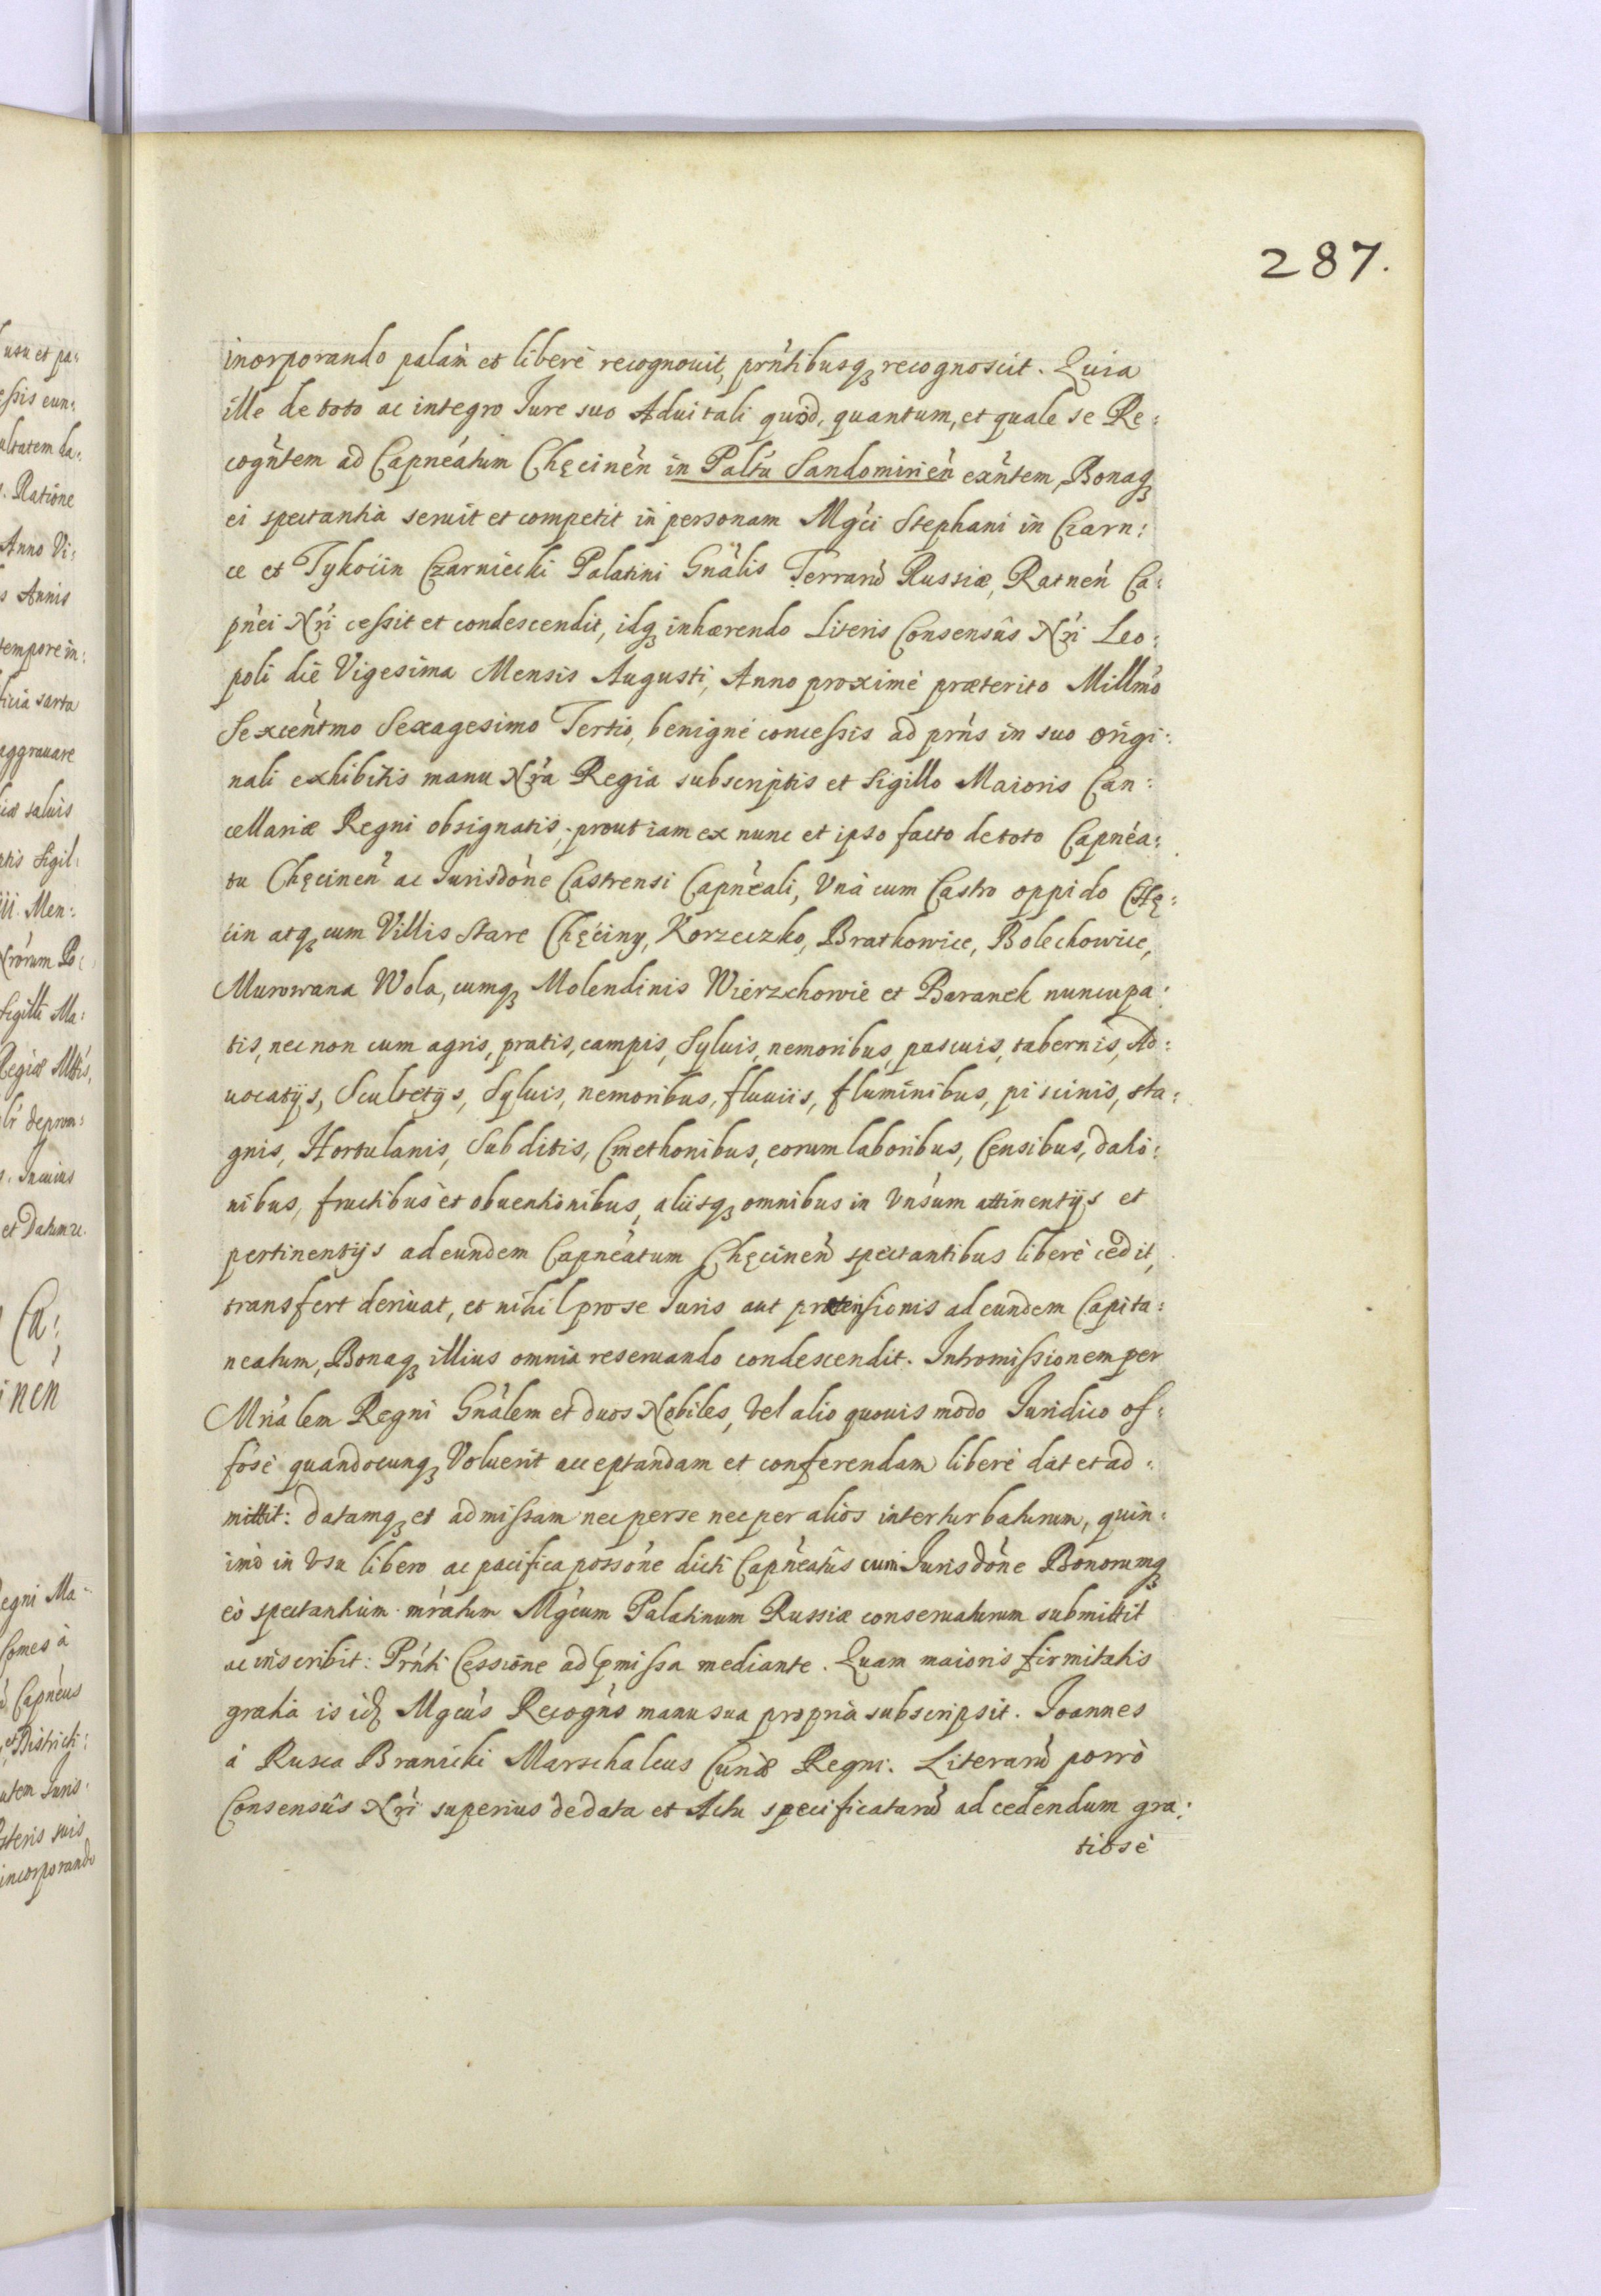 287.
inorporando palàm et liberè recognouit, prńtibusq; recognoscit. Quia
ille de toto ac integro Iure suo Aduitali quod, quantum, et quale se Re:
cogńtem ad Capneátum Chęcineń in Paltú Sandomirień exńtem, Bonaq;
ei spectantia seruit et competit in personam Mgći Stephani in Czarn:
ce et Tykoćin Czarniecki Palatini Gnális Terrarú Russiæ, Ratneń Ca:
pńei Nŕi cessit et condescendit, idq; inhærendo Literis Consensûs Nŕi Leo:
poli die Vigesima Mensis Augusti, Anno proximè præterito Millm̃o
Sexceńtmo Sexagesimo Tertio, benignè concessis ad prńs in suo origi:
nali exhibitis manu Nŕa Regia subscriptis et Sigillo Maioris Can:
cellariæ Regni obsignatis, prout iam ex nunc et ipso facto de toto Capnéa:
tu Chęcineń ac Iurisdóne Castrensi Capnéali, Vnà cum Castro oppido Chę:
ćin atq; cum Villis Stare Chęćiny, Korzeczko, Bratkowice, Bolechowice,
Murowana Wola, cumq; Molendinis Wierzchowie et Baranek nuncupa:
tis, nec non cum agris, pratis, campis, Syluis, nemoribus, pascuis, tabernis, Ad:
uocatijs, Scultetijs, Syluis, nemoribus, fluuiis, fluminibus, piscinis, sta:
gnis, Hortulanis, Subditis, Cmethonibus, eorum laboribus, Censibus, dati:
nibus, fructibus et obuentionibus, aliisq; omnibus in Vnśum attinentijs et
pertinentijs ad eundem Capneátum Chęcineń spectantibus liberè cedit,
transfert deriuat, et nihil pro se Iuris aut prætensionis ad eundem Capita:
neatum, Bonaq; illius omnia reseruando condescendit. Intromissionem per
Mriálem Regni Gnálem et duos Nobiles, vel alio quouis modo Iuridico of:
fósè quandocunq; Voluerit acceptandam et conferendam liberè dat et ad:
mittit: datamq; et admissam nec per se nec per alios interturbaturum, quin:
imò in Vsu libero ac pacifica possóne dicti Capneátûs cum Iurisdóne Bonorumq;
eò spectantium mŕatum Mgćum Palatinum Russiæ conseruaturum submittit
ac inscribit: Prńti Cessione ad pmissa mediante. Quam maioris firmitatis
gratiá is id; Mgćus Recogńs manu sua propria subscripsit. Joannes
à Rusca Branicki Marschalcus Curiæ Regni. Literarú porrò
Consensûs Nŕi superius de data et Actu specificatarú ad cedendum gra:
tiosè